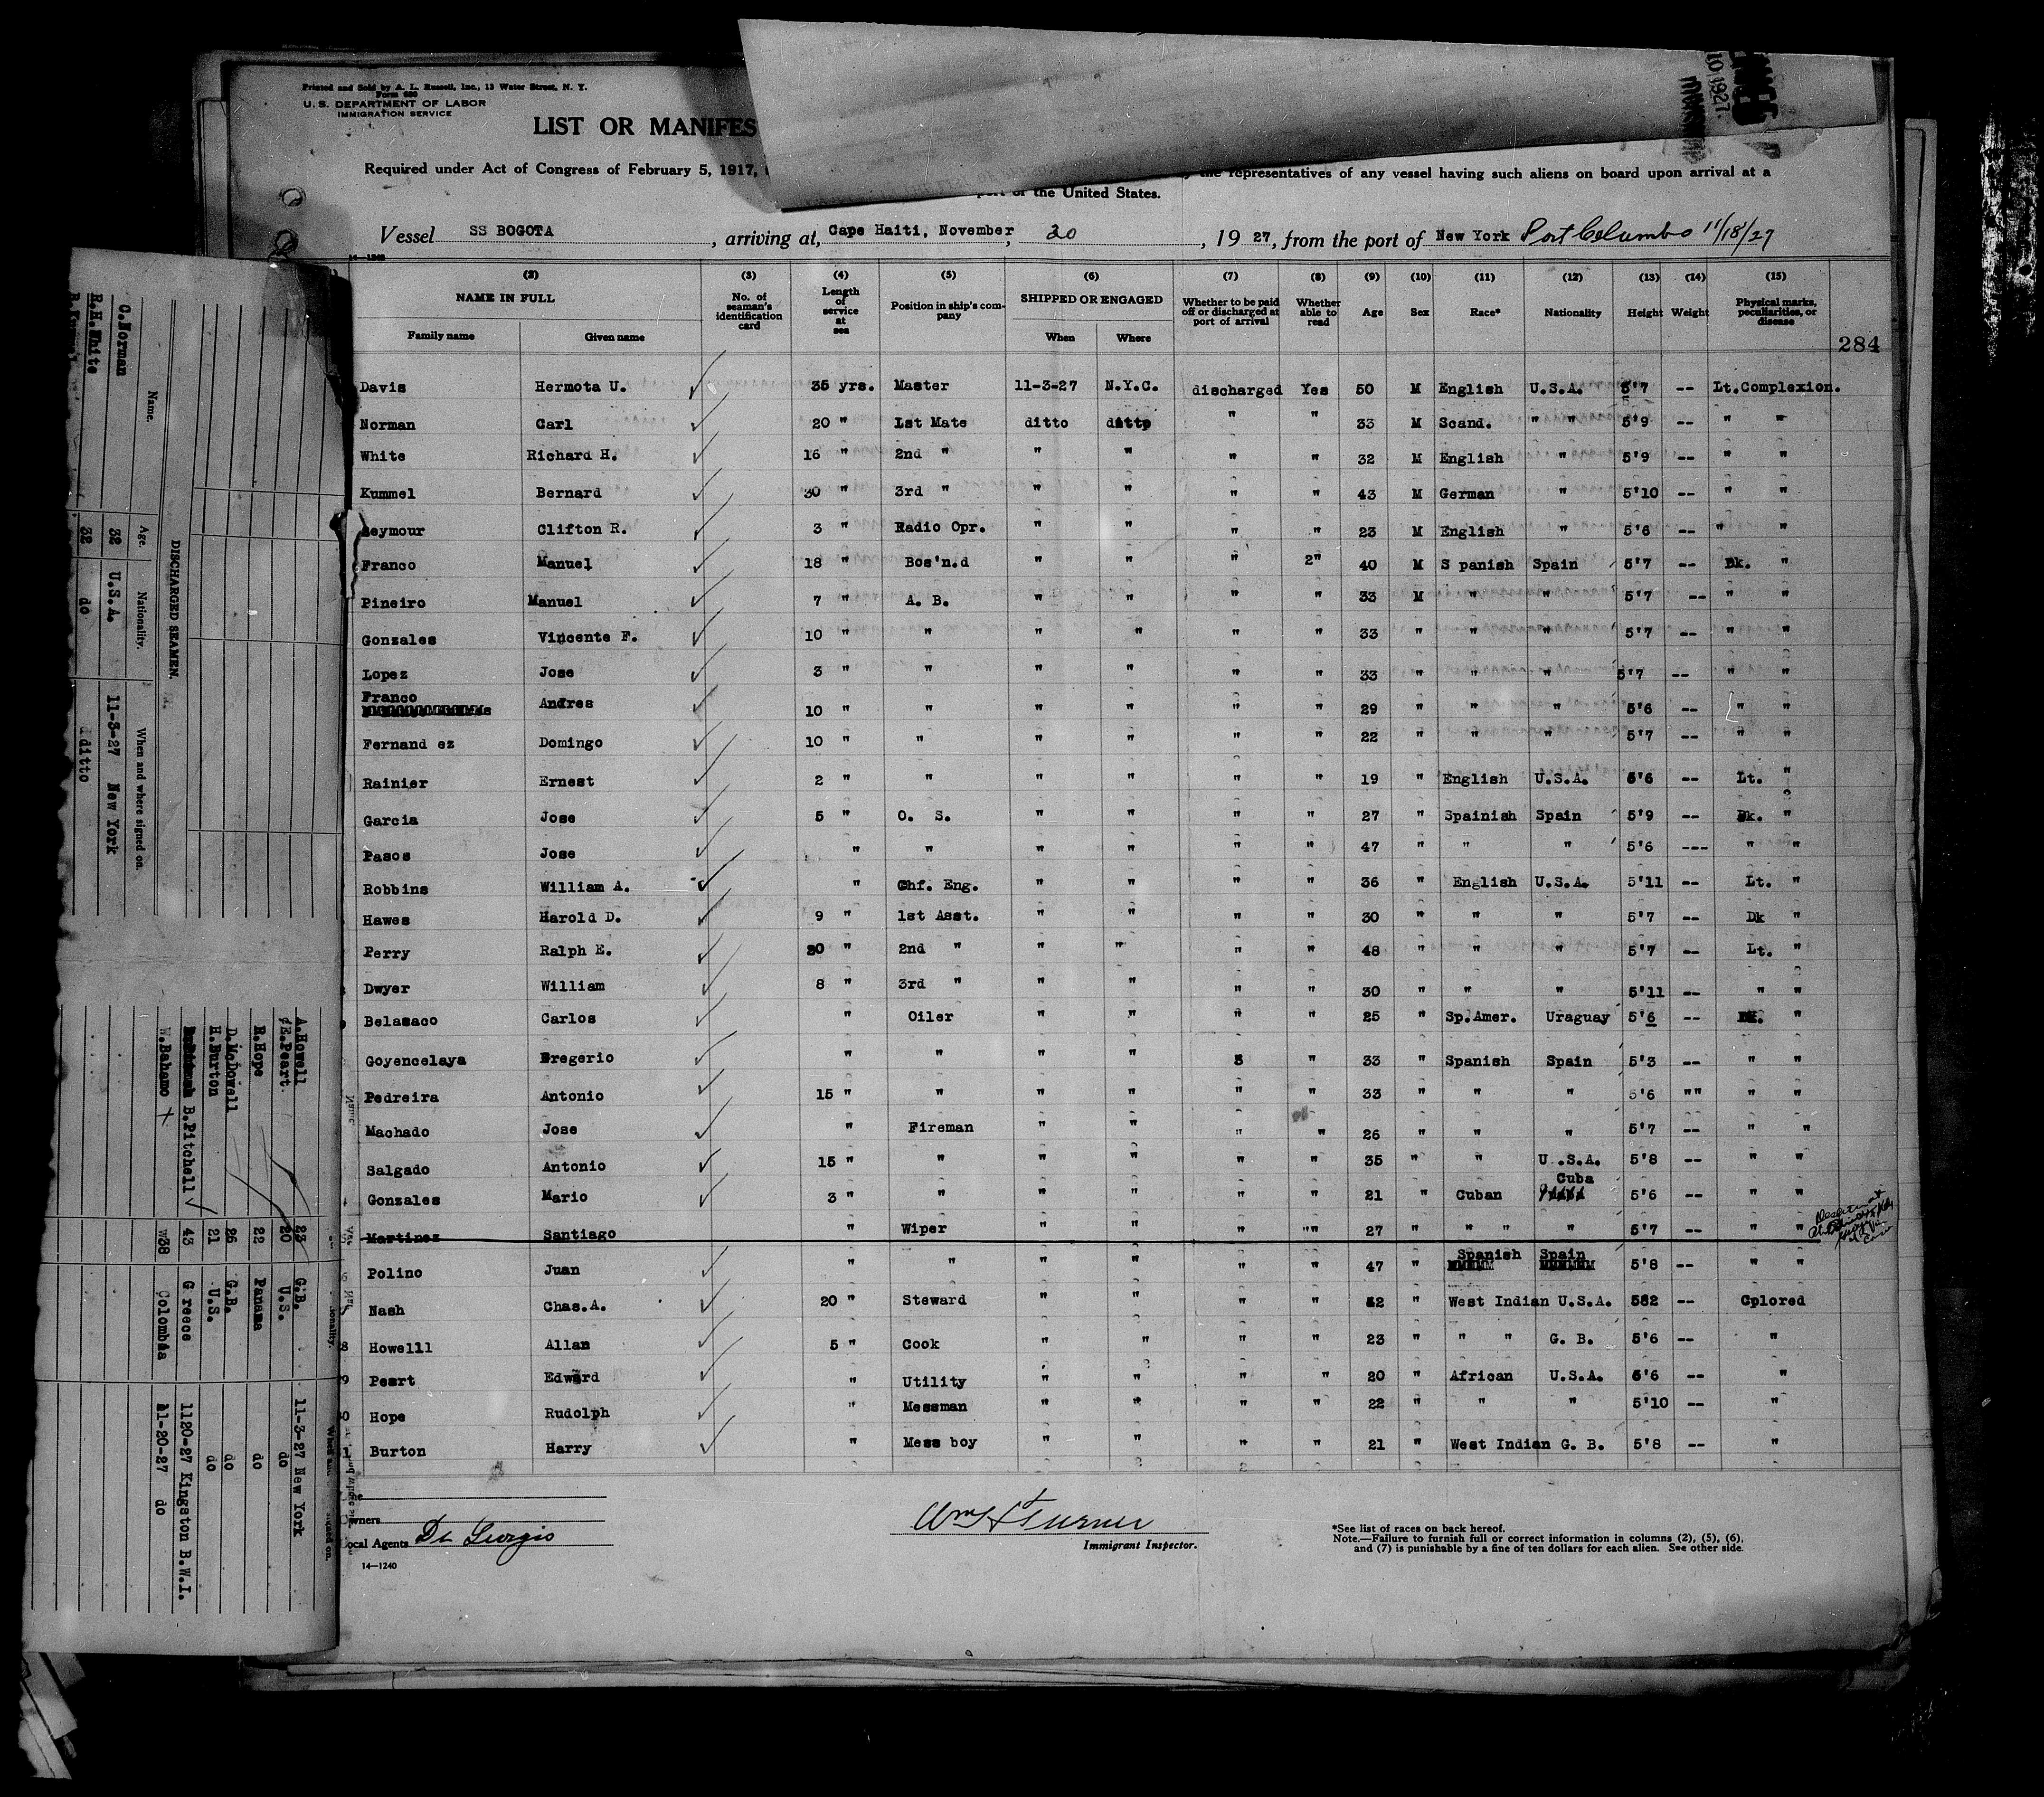 Printed and Sold by A. L. Russell, Inc., 13 Water Street, N. Y.
Form 686
U. S. DEPARTMENT OF LABOR
IMMIGRATION SERVICE
LIST OR MANIFES
Required under Act of Congress of February 5, 1917,
the representatives of any vessel having such aliens on board upon arrival at a
port of the United States.
10 1927
Vessel SS BOGOTA , arriving at, Cape Haiti, November, 20 , 19 27, from the port of New York Port Columbo 11/18/27
14—1240
(2) (3) (4) (5) (6) (7) (8) (9) (10) (11) (12) (13) (14) (15)
NAME IN FULL No. of seaman's identification card Length of service at sea Position in ship's company SHIPPED OR ENGAGED Whether to be paid off or discharged at port of arrival Whether able to read Age Sex Race* Nationality Height Weight Physical marks, peculiarities, or disease
Family name Given name When Where
284
Davis Hermota U. 35 yrs. Master 11-3-27 N.Y.C. discharged Yes 50 M English U.S.A. 5'7 -- Lt.Complexion.
Norman Carl 20 " 1st Mate ditto ditto " " 33 M Scand. " " 5'9 -- " "
White Richard H. 16 " 2nd " " " " " 32 M English " 5'9 -- " "
Kummel Bernard 30 " 3rd " " " " " 43 M German " 5'10 -- " "
Seymour Clifton R. 3 " Radio Opr. " " " " 23 M English " 5'6 -- " "
Franco Manuel 18 " Bos'n.d " " " 2" 40 M S panish Spain 5'7 -- Dk. "
Pineiro Manuel 7 " A. B. " " " " 33 M " " 5'7 -- " "
Gonzales Vincente F. 10 " " " " " " 33 " " " 5'7 -- " "
Lopez Jose 3 " " " " " 33 " " " 5'7 -- " "
Franco Andres 10 " " " " " " 29 " " " 5'6 -- " "
Fernand ez Domingo 10 " " " " " " 22 " " " 5'7 -- " "
Rainier Ernest 2 " " " " " " 19 " English U.S.A. 5'6 -- Lt. "
Garcia Jose 5 " O. S. " " " " 27 " Spainish Spain 5'9 -- Dk. "
Pasos Jose " " " " " " 47 " " " 5'6 --- " "
Robbins William A. " Chf. Eng. " " " " 36 " English U.S.A. 5'11 -- Lt. "
Hawes Harold D. 9 " 1st Asst. " " " " 30 " " " 5'7 -- Dk "
Perry Ralph E. 20 " 2nd " " " " " 48 " " " 5'7 -- Lt. "
Dwyer William 8 " 3rd " " " " " 30 " " " 5'11 -- " "
Belasaco Carlos " Oiler " " " " 25 " Sp.Amer. Uraguay 5'6 --  "
Goyencelaya Gregerio " " " " 3 " 33 " Spanish Spain 5'3 -- " "
Pedreira Antonio 15 " " " " " " 33 " " " 5'6 "" " "
Machado Jose " Fireman " " " " 26 " " " 5'7 -- " "
Salgado Antonio 15 " " " " " " 35 " " U.S.A. 5'8 -- " "
Gonzales Mario 3 " " " " " " 21 " Cuban Cuba 5'6 -- " "
Martinez Santiago " Wiper " " " "" 27 " " " " 5'7 -- " "
Polino Juan " " " " " " 47 " Spanish Spain 5'8 -- " "
Nash Chas.A. 20 " Steward " " " " 52 " West Indian U.S.A. 582 -- Cplored
Howelll Allan 5 " Cook " " " " 23 " " " G. B. 5'6 -- "
Peart Edward " Utility " " " " 20 " African U.S.A. 5'6 -- "
Hope Rudolph " Messman " " " " 22 " " " 5'10 -- "
Burton Harry " Mess boy " " " " 21 " West Indian G. B. 5'8 -- "
Owners
Local Agents Di Giorgio
14—1240
Wm H Turner
Immigrant Inspector.
*See list of races on back hereof.
Note.—Failure to furnish full or correct information in columns (2), (5), (6),
and (7) is punishable by a fine of ten dollars for each alien. See other side.
DISCHARGED SEAMEN.
Name. Age. Nationality. When and where signed on.
C.Norman 32 U.S.A. 11-3-27 New York
R.H.White 32 do ditto
A.Howell 23 G.B. 11-3-27 New York
E.Peart. 20 U.S. do
R.Hope 22 Panama do
D.McDowell 26 G.B. do
H.Burton 21 U.S. do
B.Pitchell 43 G reece 1120-27 Kingston B.W.I.
W.Bahamo w38 Colombia 11-20-27 do